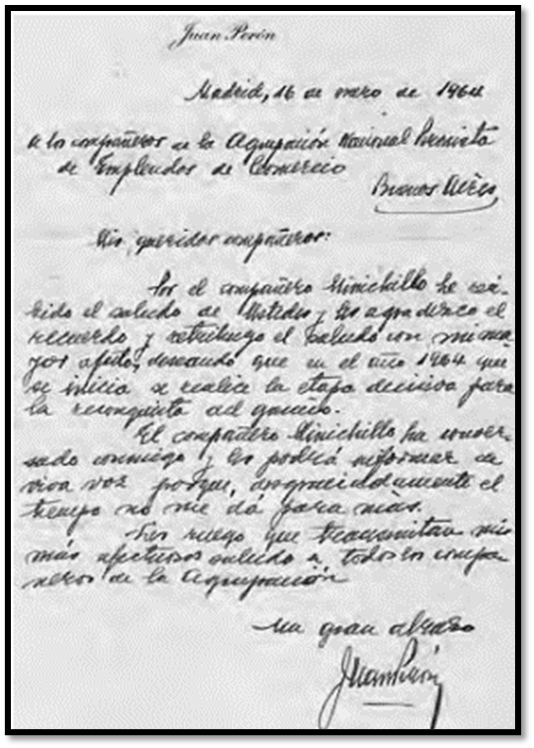 Juan Perón
Madrid, 16 de enero de 1964
A los compañeros de la Agrupación Nacional Peronista
de Empleados de Comercio
Buenos Aires
Mis queridos compañeros:
Por el compañero Minichillo he reci-
bido el saludo de Ustedes y les agradezco el
recuerdo y retribuyo el saludo con mi ma-
yor afecto, deseando que en el año 1964 que
se inicia se realice la etapa decisiva para
la reconquista del
El compañero Minichillo ha conver-
sado conmigo y les podrá informar de
viva voz porque, desgraciadamente el
tiempo no me dá para más.
Les ruego que transmitan mi
más afectuoso saludo a todos los compa-
ñeros de la Agrupación
Un gran abrazo
Juan Perón